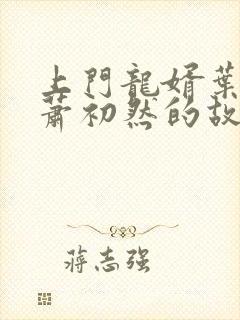 上門龍婿葉
蕭初然的故
蔣志強